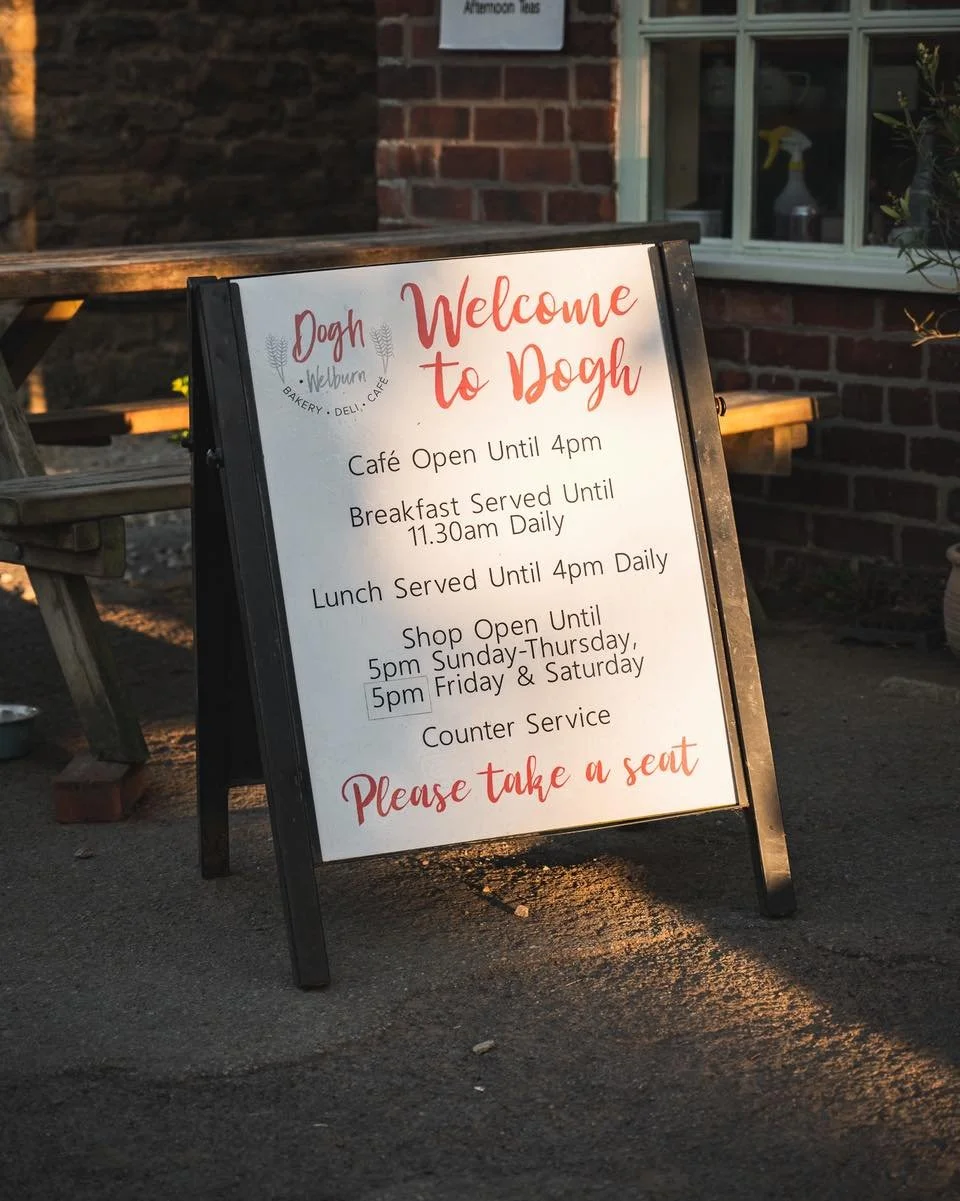 Afternoon Teas
Dogh
• Welburn
BAKERY • DELI • CAFÉ
Welcome
to Dogh
Café Open Until 4pm
Breakfast Served Until
11.30am Daily
Lunch Served Until 4pm Daily
Shop Open Until
5pm Sunday-Thursday,
5pm Friday & Saturday
Counter Service
Please take a seat